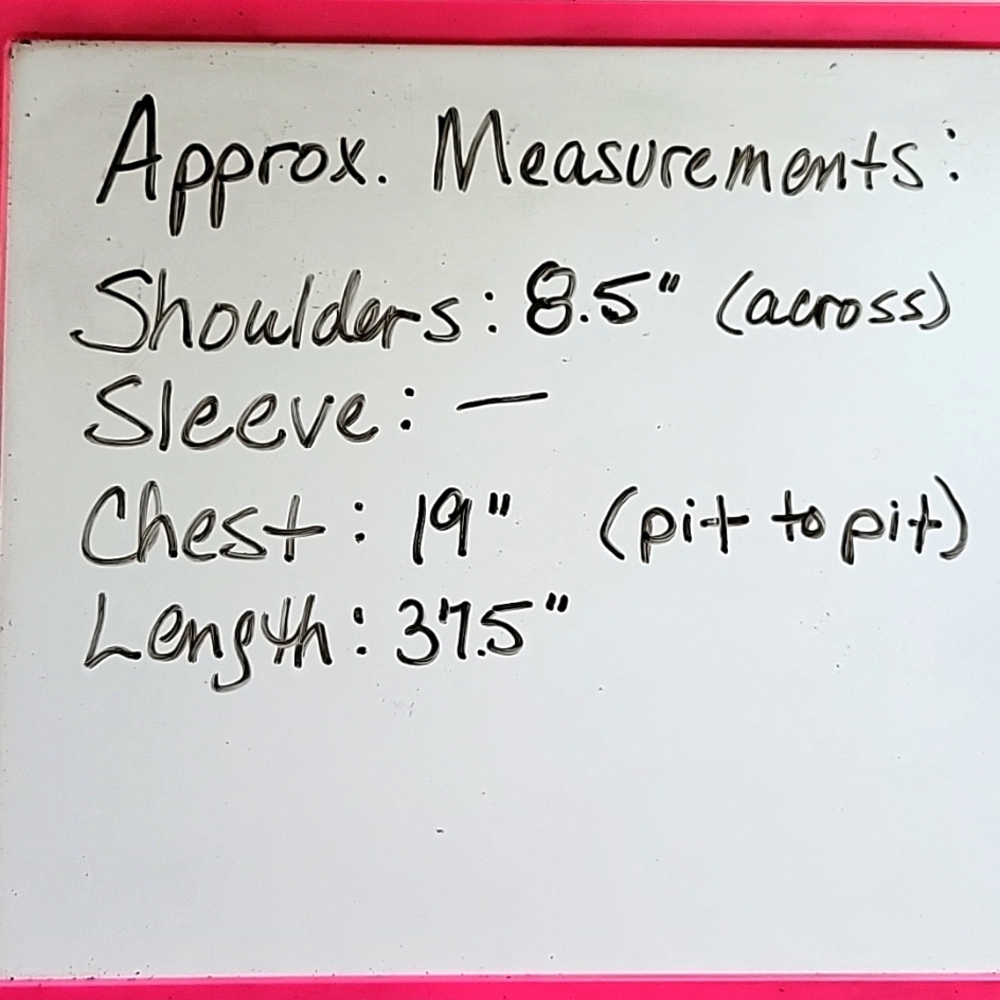 Approx. Measurements:
Shoulders: 8.5" (across)
Sleeve: —
Chest: 19" (pit to pit)
Length: 37.5"